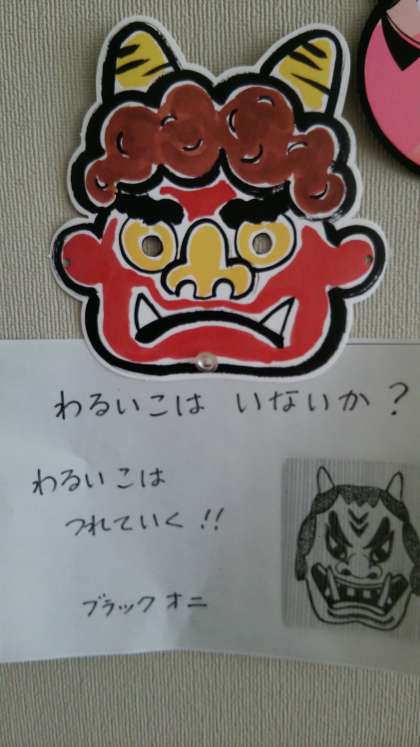 わるいこは いないか?
わるいこは
つれていく!!
ブラックオニ